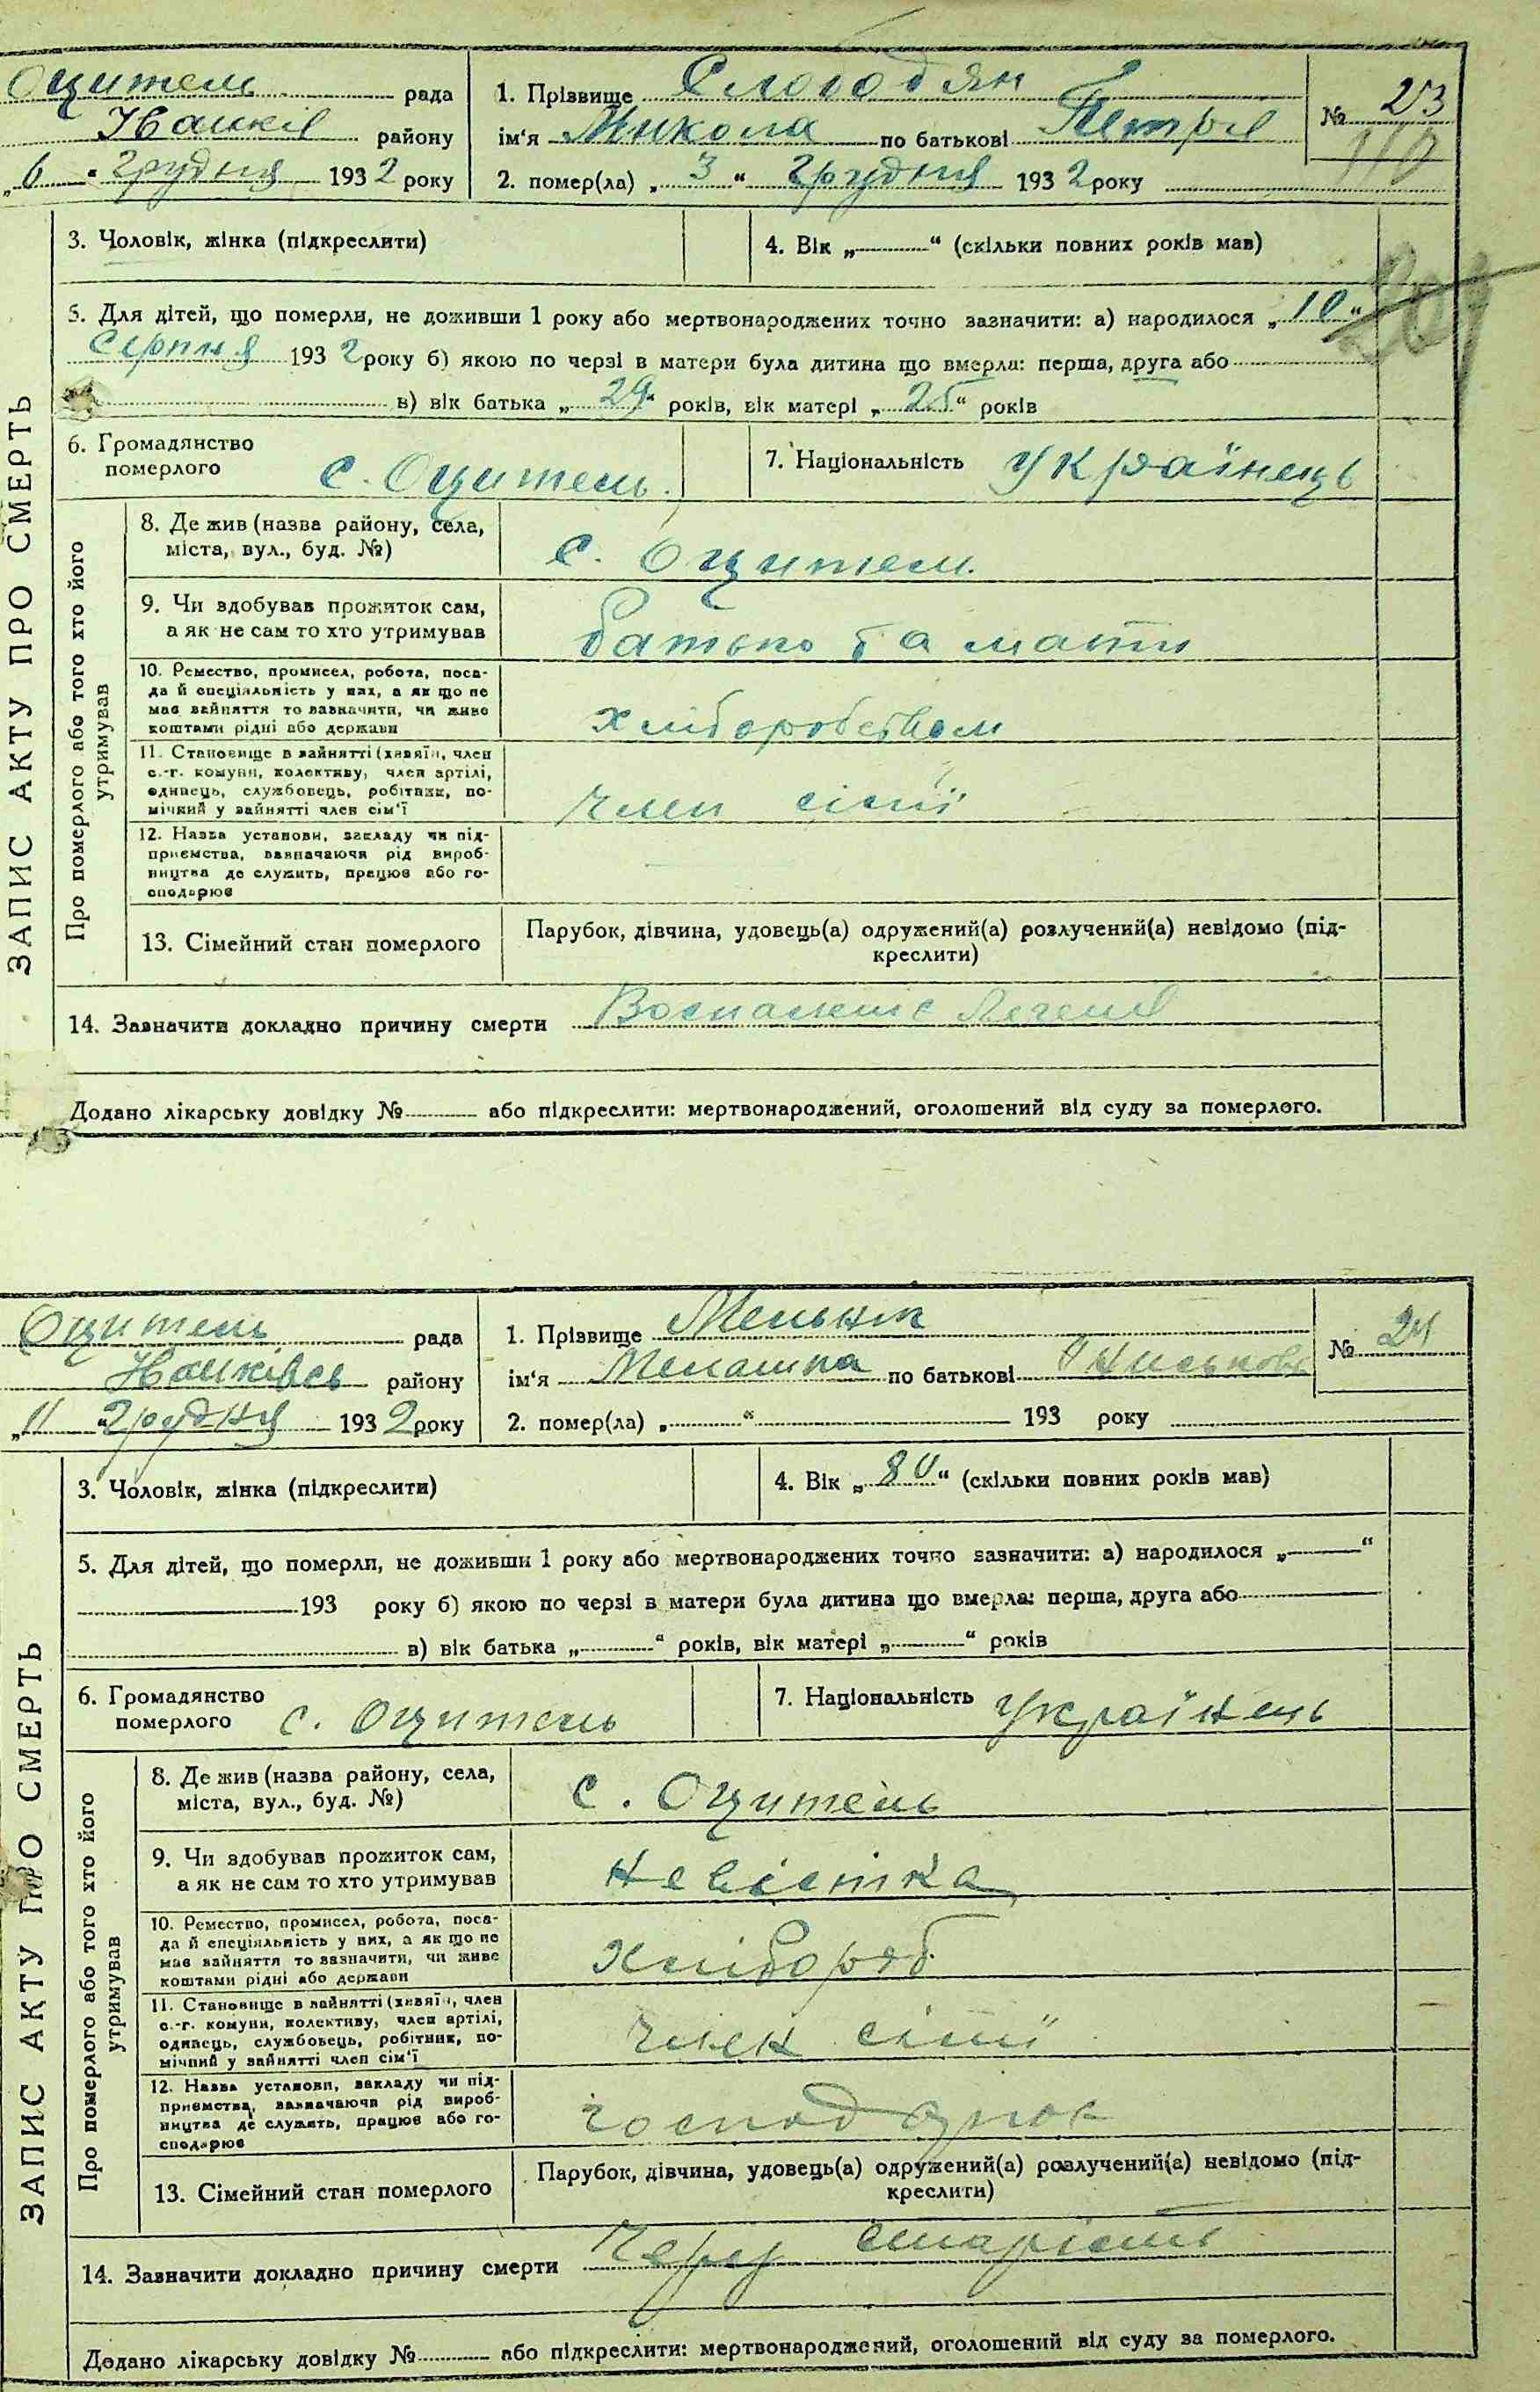 Оцитель рада
району
„6“ грудня 1932 року
1. Прізвище Слободян
ім‘я Микола по батькові Петров
2. помер(ла) „3“ грудня 1932 року
№ 23
110
3. Чоловік, жінка (підкреслити)
4. Вік „ “ (скільки повних років мав)
5. Для дітей, що померли, не доживши 1 року або мертвонароджених точно зазначити: а) народилося „10“
Серпня 1932 року б) якою по черзі в матери була дитина що вмерла: перша, друга або
в) вік батька „29“ років, вік матері „25“ років
6. Громадянство
померлого с. Оцитель.
7. Національність Українець
ЗАПИС АКТУ ПРО СМЕРТЬ
Про померлого або того хто його
утримував
8. Де жив (назва району, села,
міста, вул., буд. №)
с. Оцитель
9. Чи здобував прожиток сам,
а як не сам то хто утримував
батько та мати
10. Ремество, промисел, робота, поса-
да й спеціяльність у них, а як що не
має зайняття то зазначити, чи живе
коштами рідні або держави
хліборобством
11. Становище в зайнятті (хазяїн, член
с.-г. комуни, колективу, член артілі,
одинець, службовець, робітник, по-
мічний у зайнятті член сім‘ї
член сімї
12. Назва установи, закладу чи під-
приємства, зазначаючи рід вироб-
ництва де служить, працює або го-
сподарює
13. Сімейний стан померлого
Парубок, дівчина, удовець(а) одружений(а) розлучений(а) невідомо (під-
креслити)
14. Зазначити докладно причину смерти Воспаленіє Легенів
Додано лікарську довідку № або підкреслити: мертвонароджений, оголошений від суду за померлого.
Оцитель рада
району
„11“ грудня 1932 року
1. Прізвище Мельник
ім‘я Мелашка по батькові
2. помер(ла) „ “ 193 року
№ 24
3. Чоловік, жінка (підкреслити)
4. Вік „80“ (скільки повних років мав)
5. Для дітей, що померли, не доживши 1 року або мертвонароджених точно зазначити: а) народилося „ “
193 року б) якою по черзі в матери була дитина що вмерла: перша, друга або
в) вік батька „ “ років, вік матері „ “ років
6. Громадянство
померлого с. Оцитель
7. Національність Українець
ЗАПИС АКТУ ПРО СМЕРТЬ
Про померлого або того хто його
утримував
8. Де жив (назва району, села,
міста, вул., буд. №)
с. Оцитель
9. Чи здобував прожиток сам,
а як не сам то хто утримував
невістка
10. Ремество, промисел, робота, поса-
да й спеціяльність у них, а як що не
має зайняття то зазначити, чи живе
коштами рідні або держави
хлібороб
11. Становище в зайнятті (хазяїн, член
с.-г. комуни, колективу, член артілі,
одинець, службовець, робітник, по-
мічний у зайнятті член сім‘ї
член сімї
12. Назва установи, закладу чи під-
приємства, зазначаючи рід вироб-
ництва де служить, працює або го-
сподарює
13. Сімейний стан померлого
Парубок, дівчина, удовець(а) одружений(а) розлучений(а) невідомо (під-
креслити)
14. Зазначити докладно причину смерти Через старість
Додано лікарську довідку № або підкреслити: мертвонароджений, оголошений від суду за померлого.